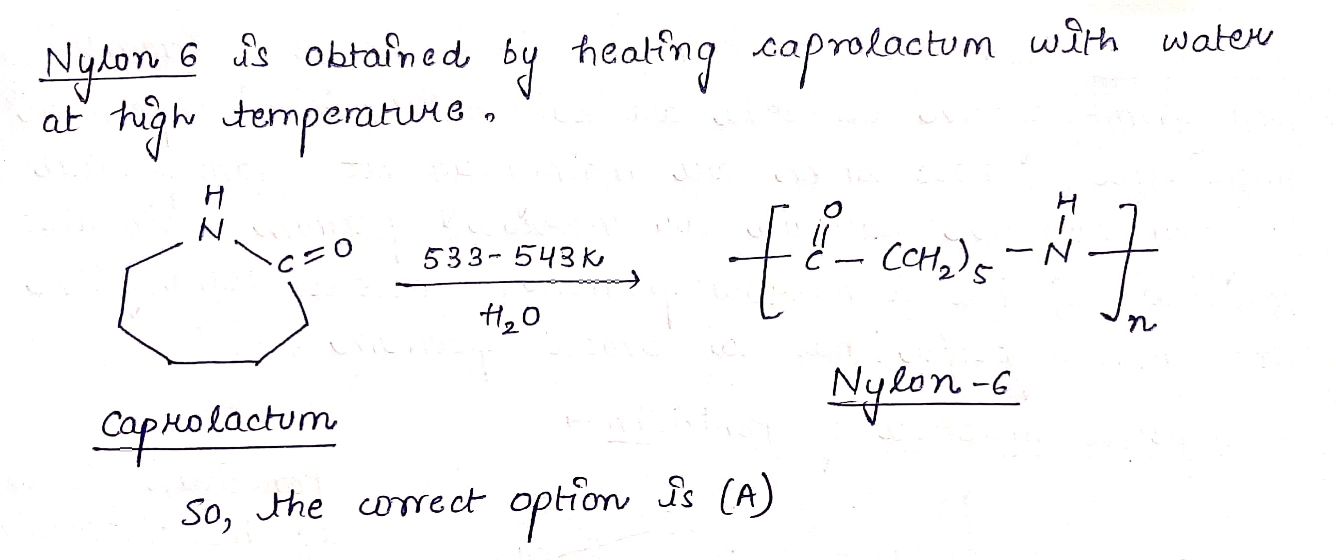 Nylon 6 is obtained by heating caprolactum with water
at high temperature.
H
N
C=O
533-543K
H₂O
O
||
C - (CH₂)₅ - N
H
n
Caprolactum
Nylon-6
So, the correct option is (A)